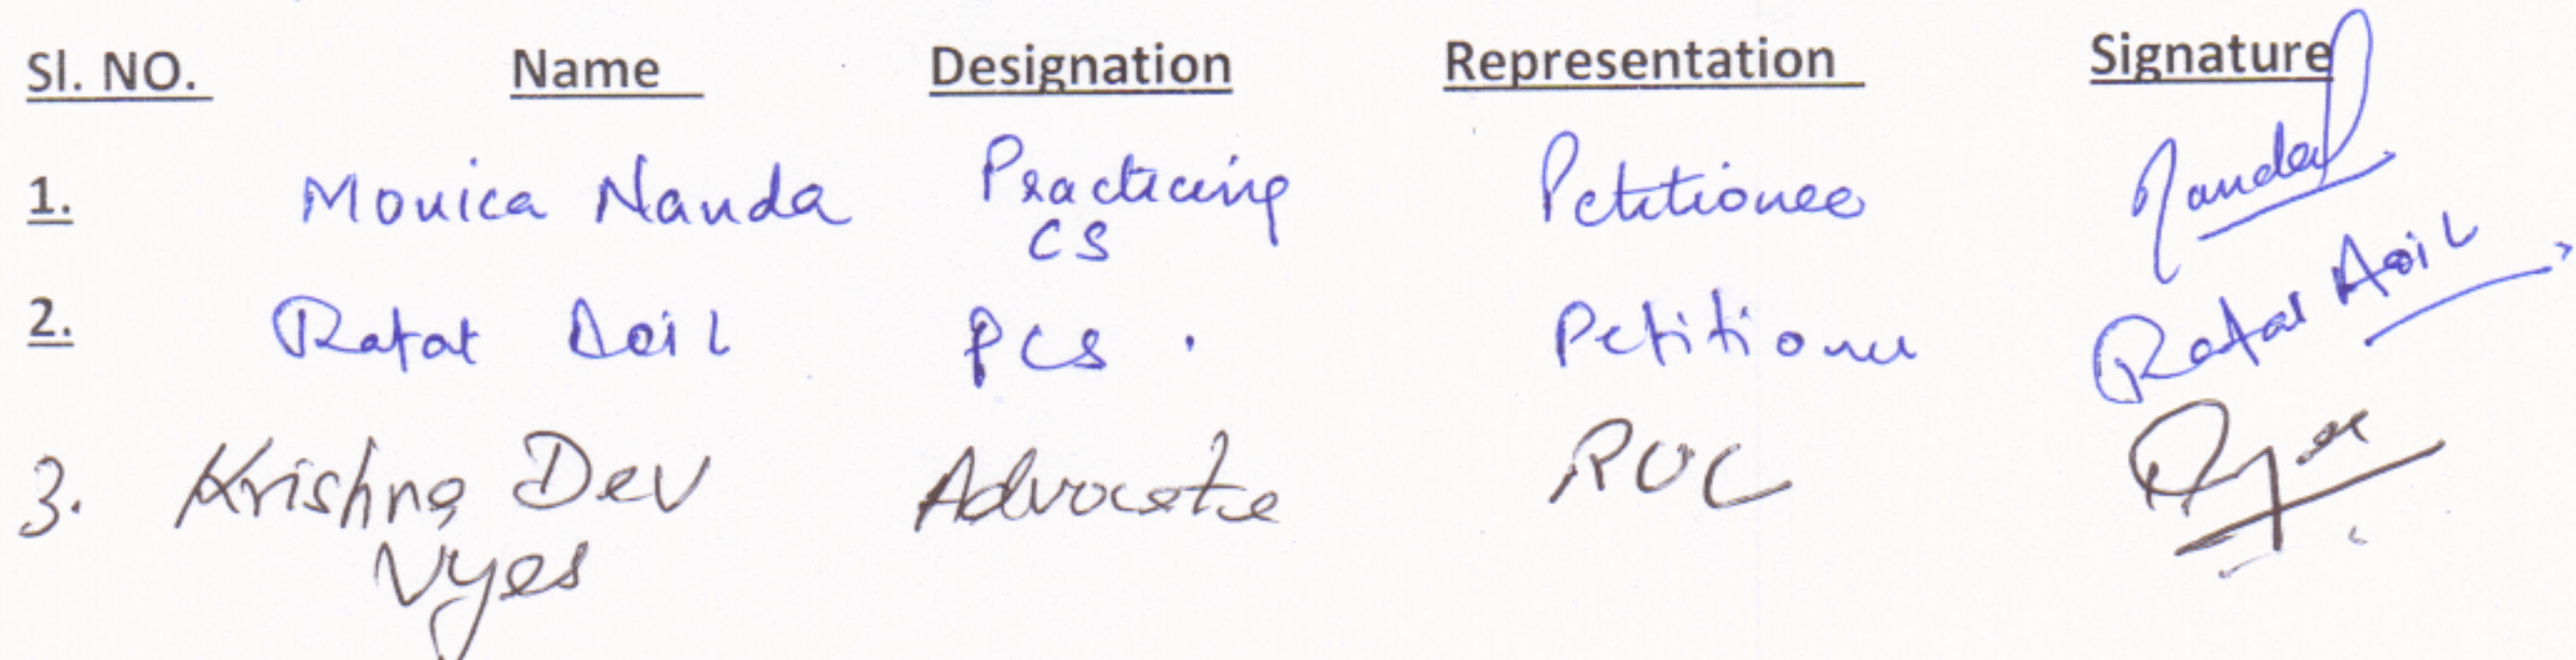 Sl. NO. Name Designation Representation Signature
1. Monica Nanda Practicing CS Petitioner Nanda
2. Petitioner
PCS .
3. Krishna Dev Vyas Advocate ROC